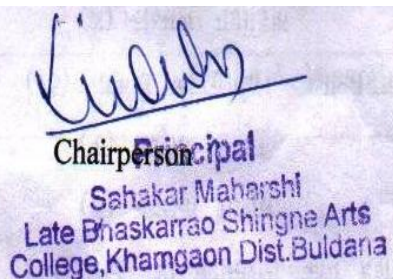 Chairperson
Principal
Sahakar Maharshi
Late Bhaskarrao Shingne Arts
College,Khamgaon Dist.Buldana